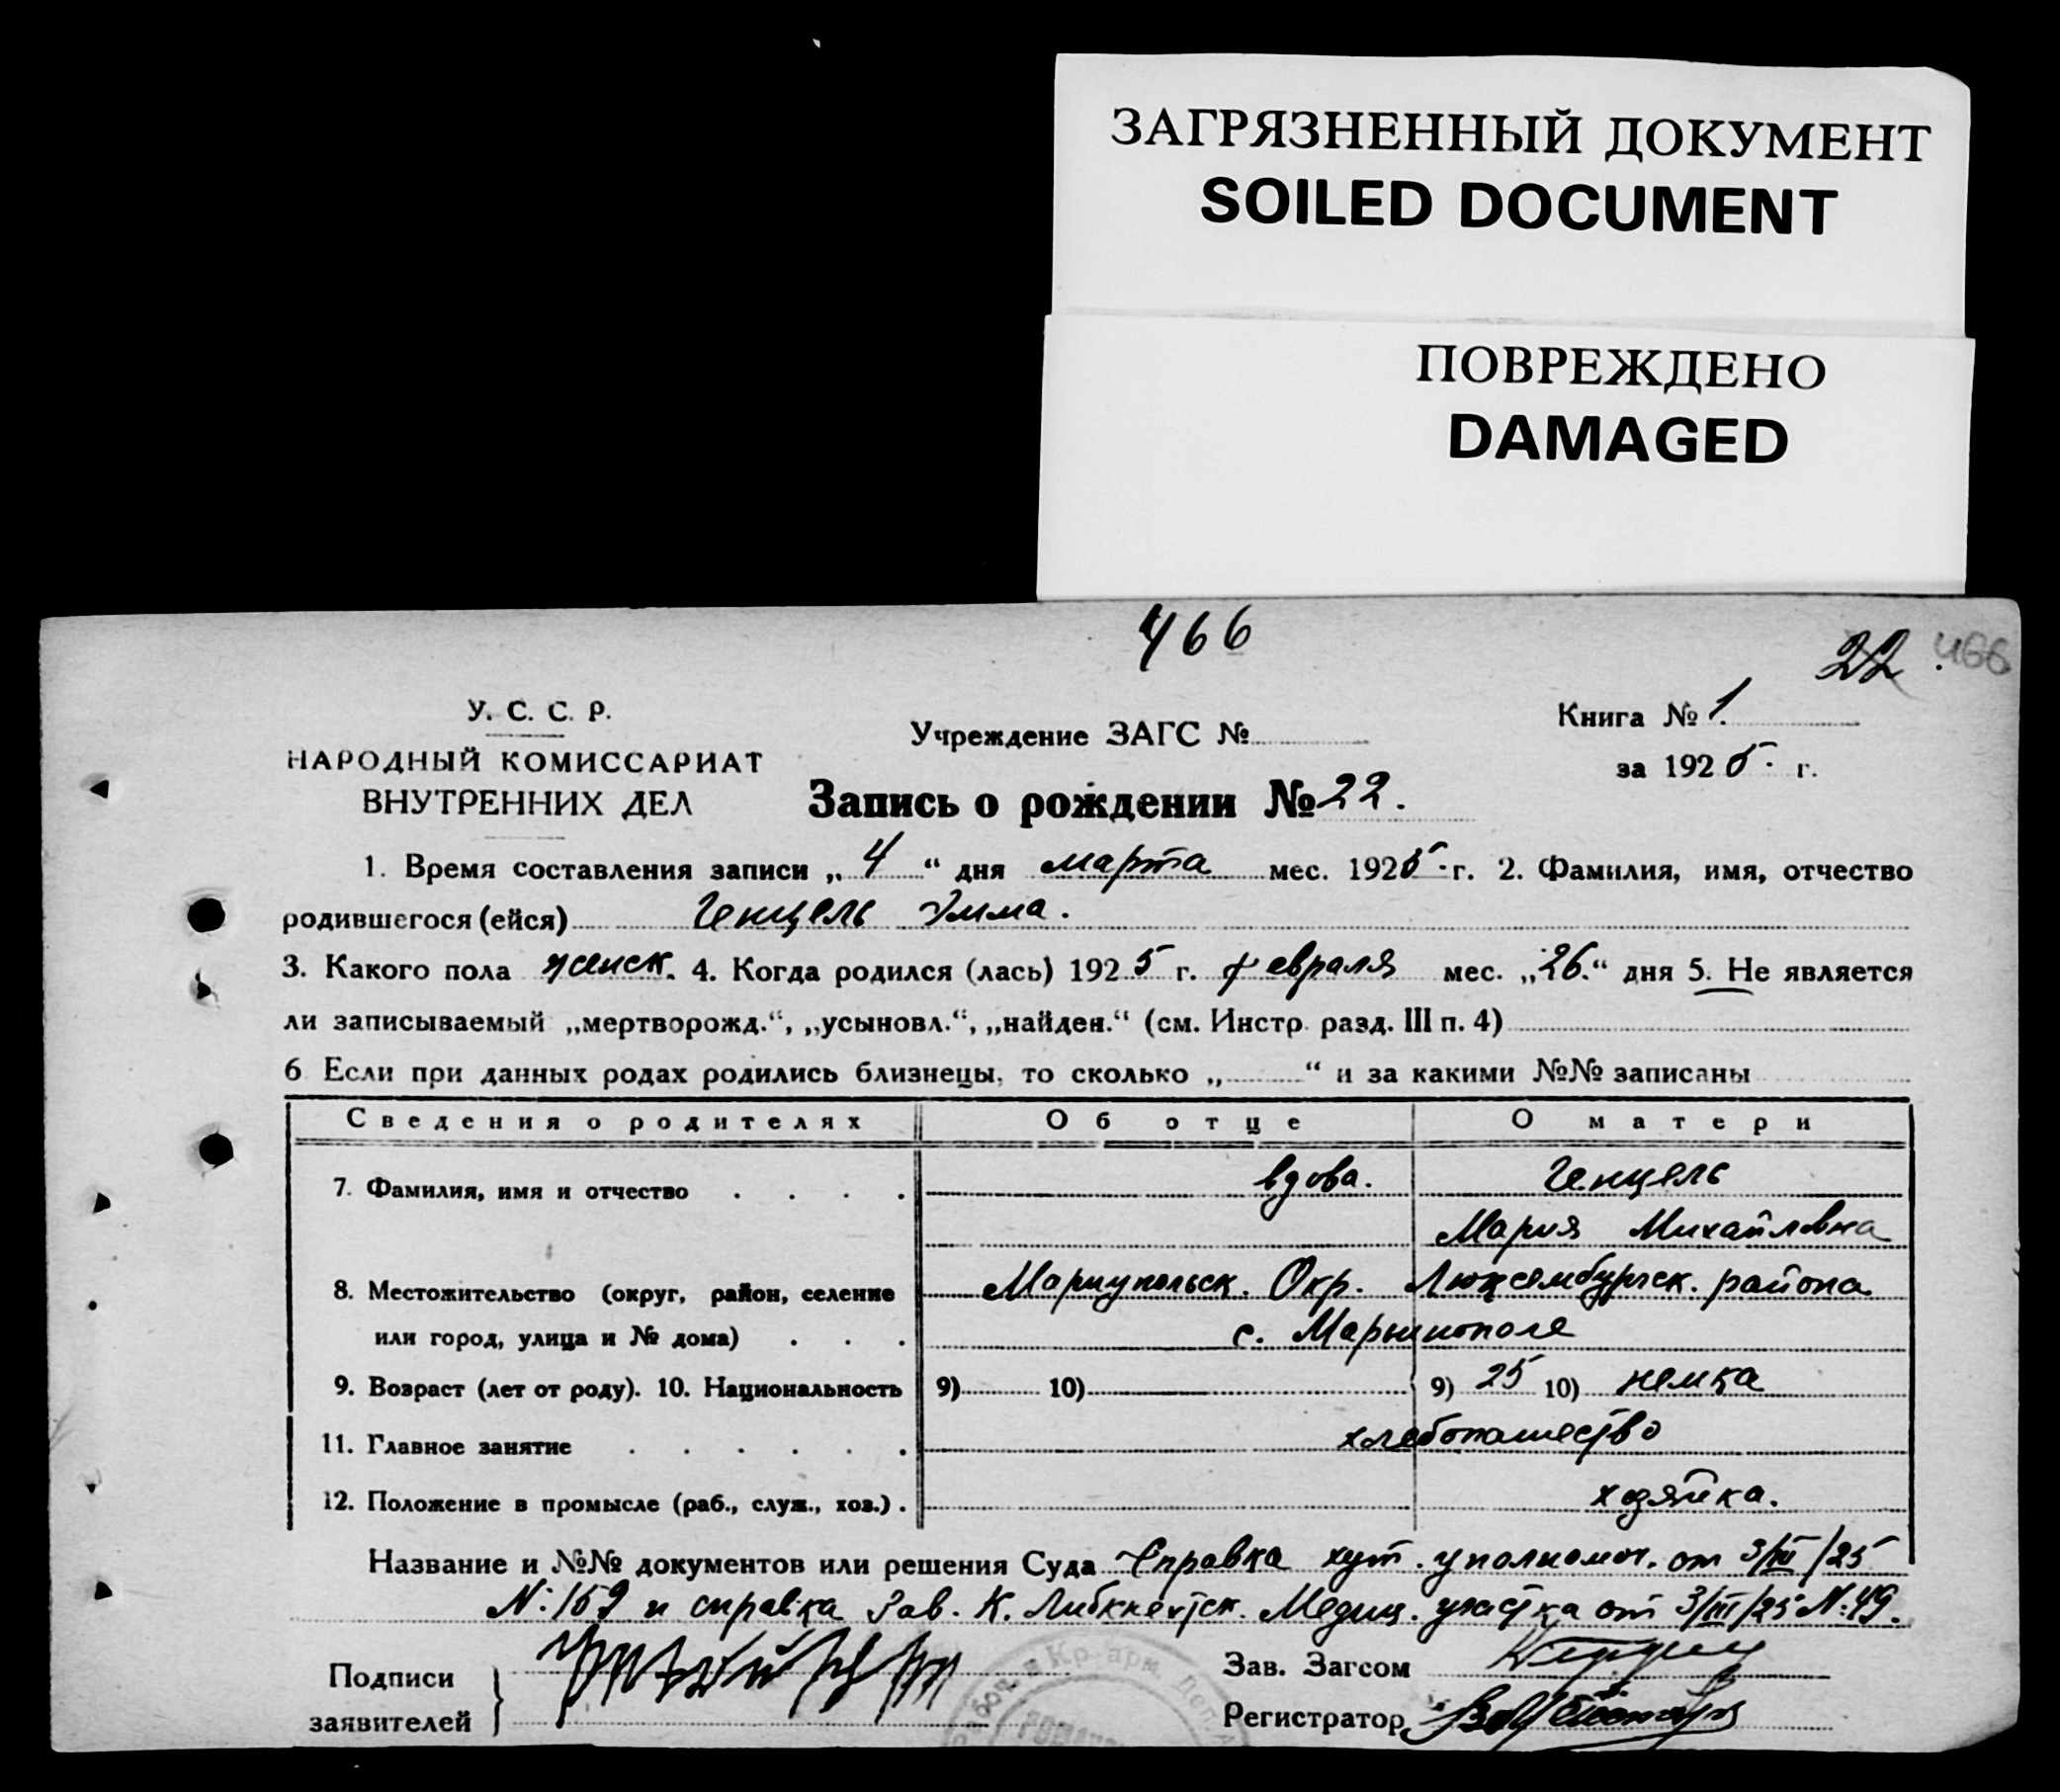 ЗАГРЯЗНЕННЫЙ ДОКУМЕНТ
SOILED DOCUMENT
ПОВРЕЖДЕНО
DAMAGED
466
22. 466
У. С. С. Р.
НАРОДНЫЙ КОМИССАРИАТ
ВНУТРЕННИХ ДЕЛ
Учреждение ЗАГС №
Книга № 1.
за 1925. г.
Запись о рождении № 22.
1. Время составления записи „ 4 “ дня марта мес. 1925. г. 2. Фамилия, имя, отчество
родившегося (ейся) Генцель Эмма.
3. Какого пола женск. 4. Когда родился (лась) 1925 г. февраля мес. „26.“ дня 5. Не является
ли записываемый „мертворожд.“, „усыновл.“, „найден.“ (см. Инстр. разд. III п. 4)
6 Если при данных родах родились близнецы, то сколько „ “ и за какими №№ записаны
Сведения о родителях Об отце О матери
7. Фамилия, имя и отчество . . . . вдова. Генцель
Мария Михайловна
8. Местожительство (округ, район, селение Мариупольск. Окр. Люксембургск. района
или город, улица и № дома) . . . с. Марьинополе
9. Возраст (лет от роду). 10. Национальность 9) 10) 9) 25 10) немка
11. Главное занятие . . . . . . хлебопашество
12. Положение в промысле (раб., служ., хоз.) . хозяйка.
Название и №№ документов или решения Суда Справка хут. уполномоч. от 3/III/25
N: 159 и справка Зав. К. Либкнехтск. Медиц. участка от 3/III/25 N: 49.
Подписи
заявителей
Зав. Загсом
Регистратор